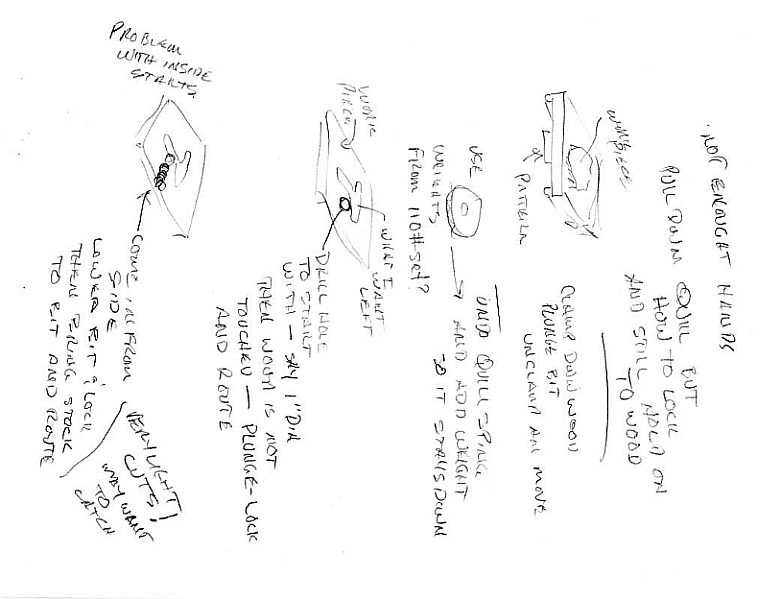 NOT ENOUGHT HANDS
PULL DOWN QUILL BUT
HOW TO LOCK
AND STILL HOLD ON
TO WOOD
WORK
PIECE
PATTERN
CLAMP DOWN WOOD
PLUNGE BIT
UNCLAMP AND MOVE
USE
WEIGHTS
FROM 110# SET?
UNDO QUILL SPRING
AND ADD WEIGHT
SO IT STAYS DOWN
WORK
PIECE
WHAT I
WANT
LEFT
DRILL HOLE
TO START
WITH - SAY 1" DIA
THEN WOOD IS NOT
TOUCHED - PLUNGE-LOCK
AND ROUTE
PROBLEM
WITH INSIDE
STARTS.
COME IN FROM
SIDE
LOWER BIT & LOCK
THEN BRING STOCK
TO BIT AND ROUTE
VERY LIGHT
CUTS!
MAY WANT
TO
CATCH